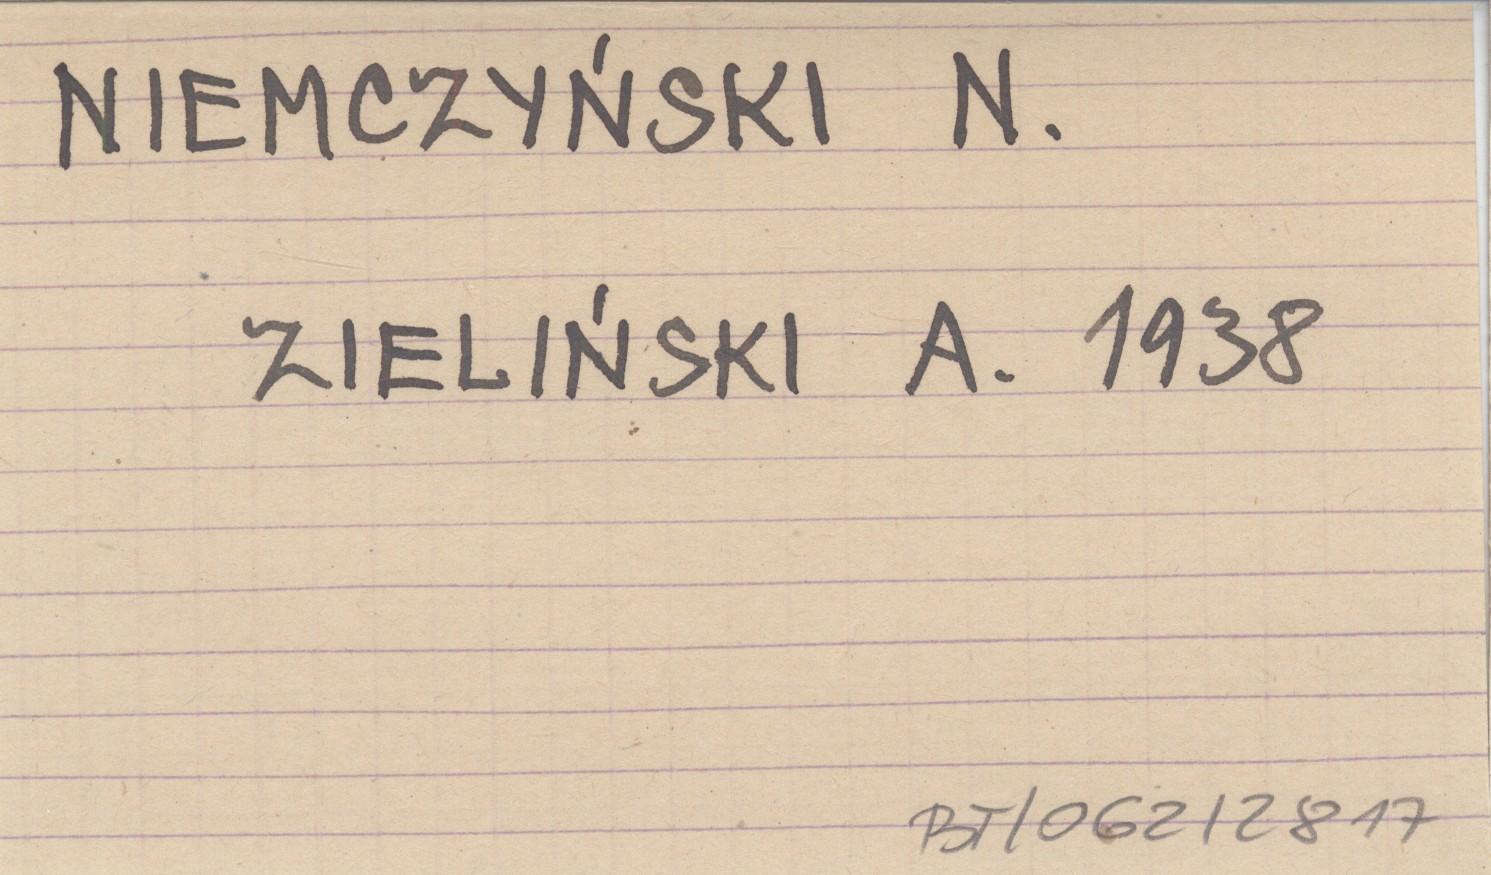 NIEMCZYŃSKI N.
ZIELIŃSKI A. 1938
BT/062/2817